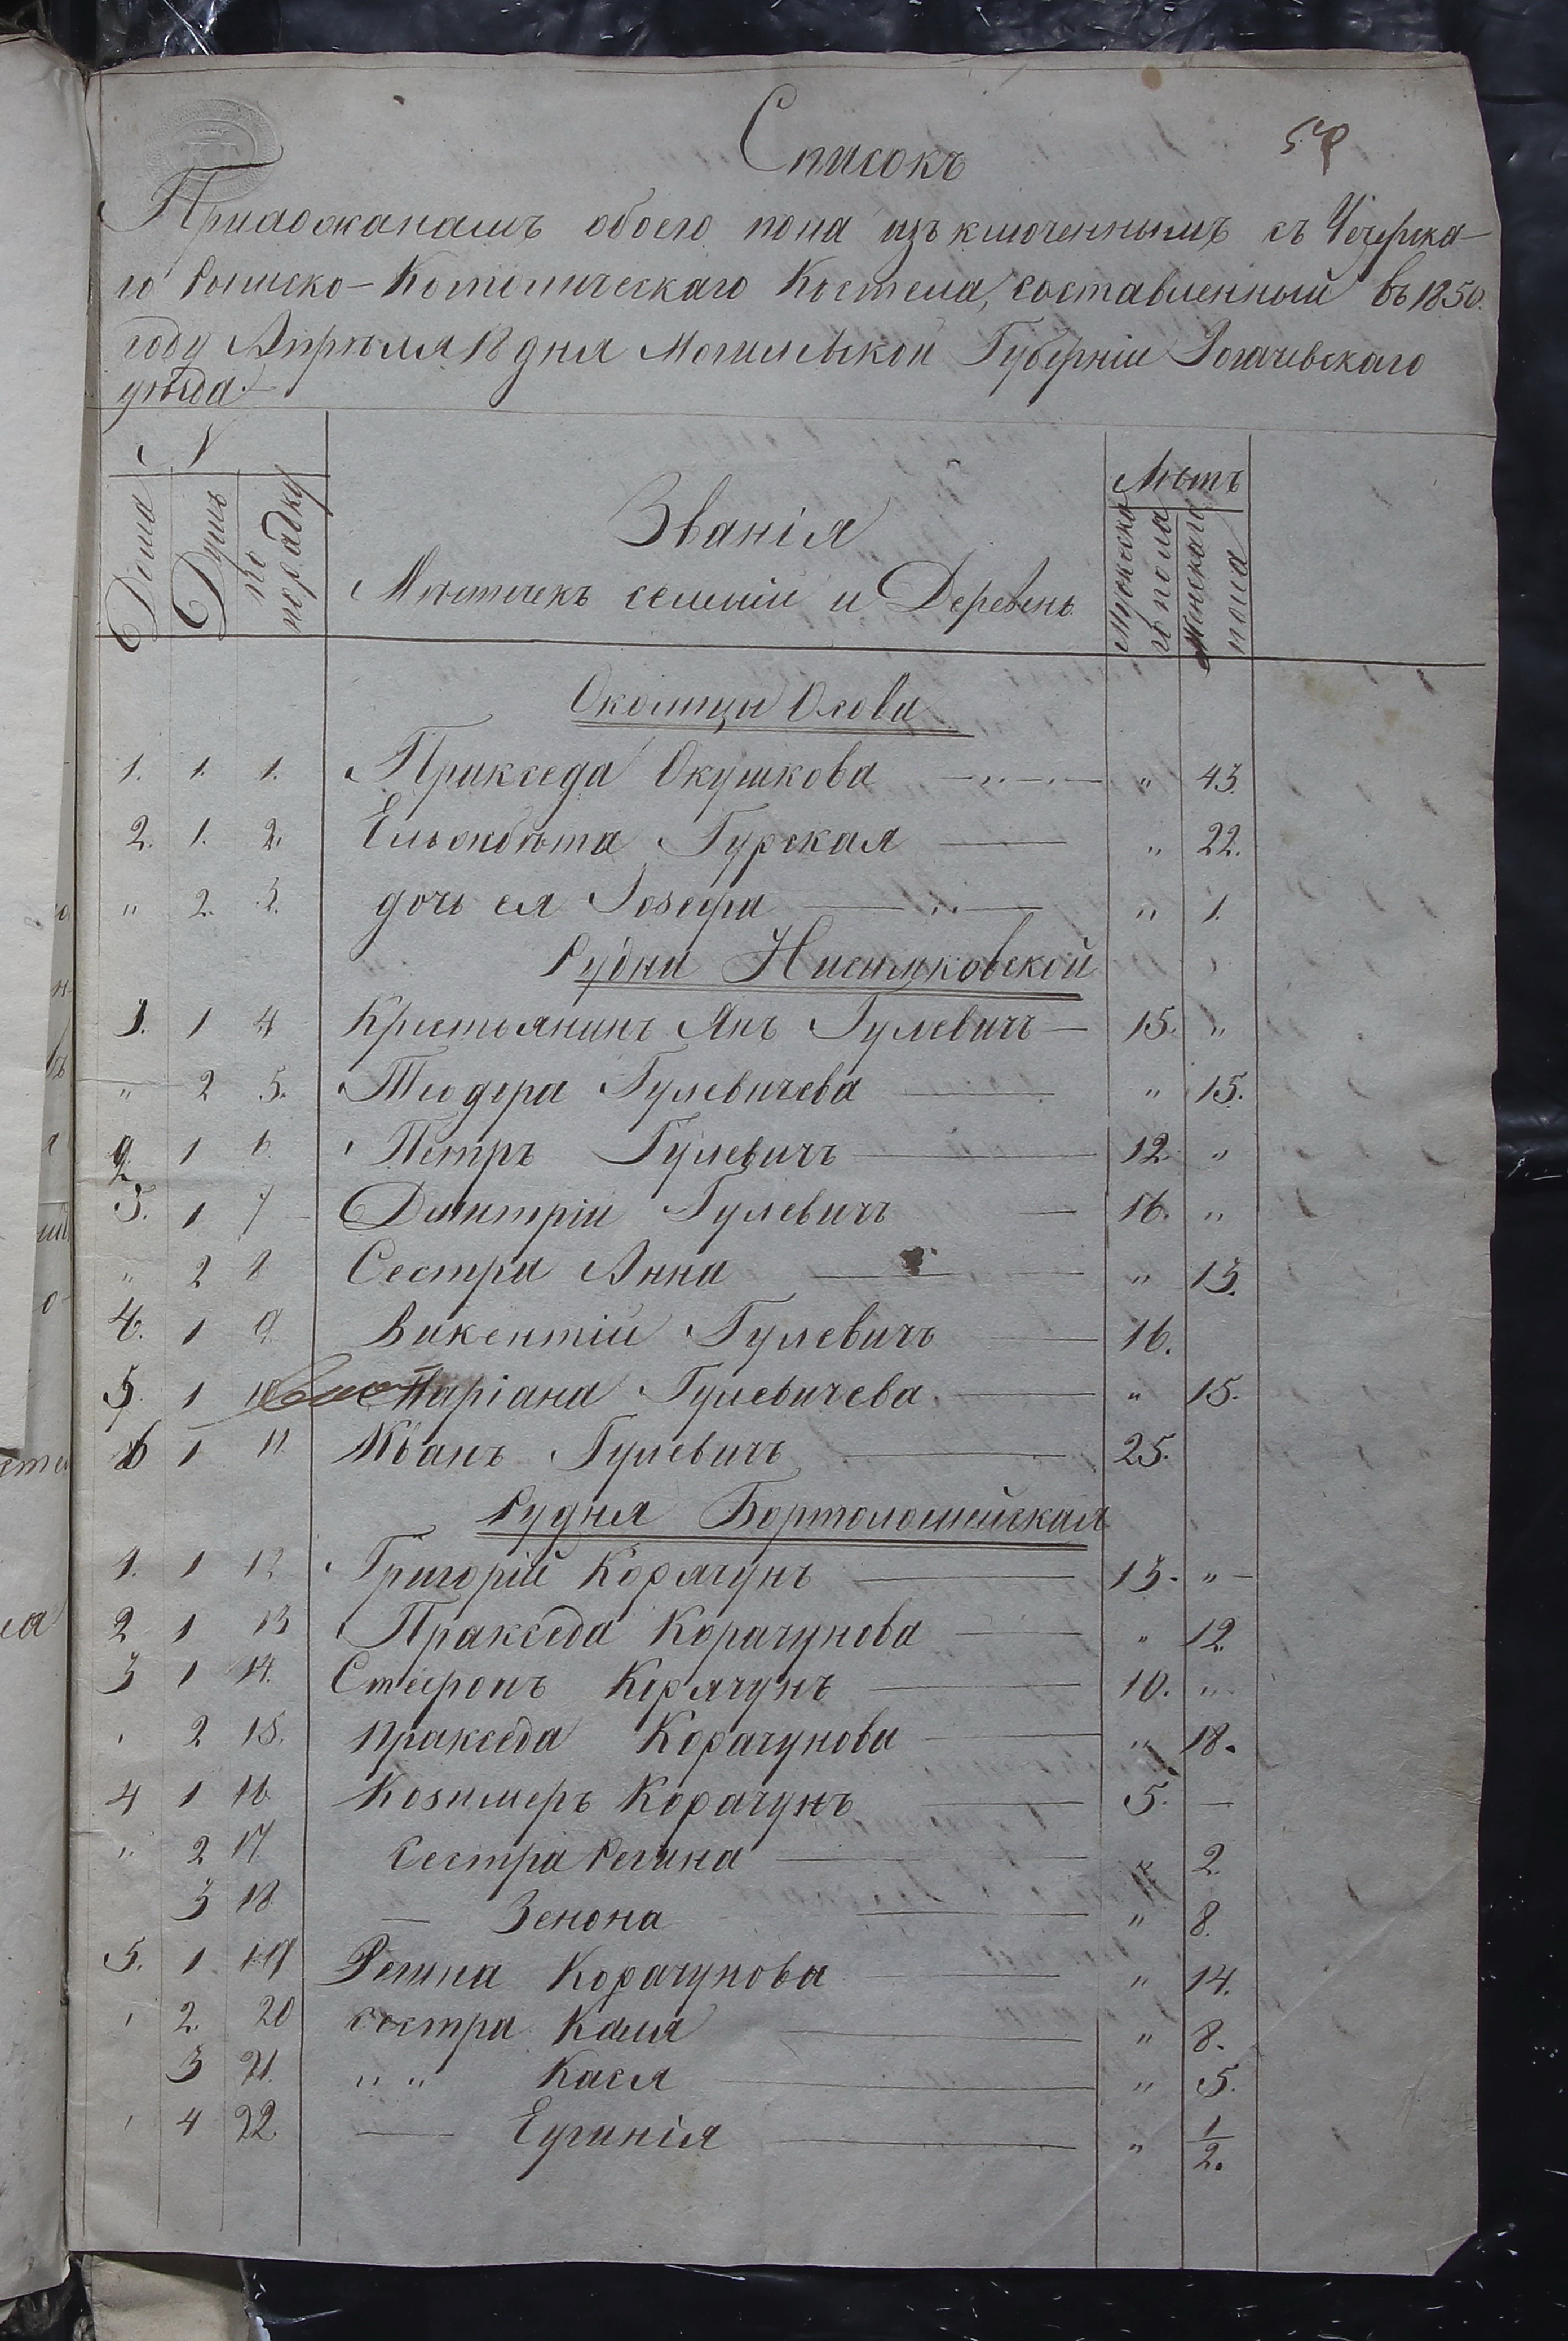 Списокъ
Прихожанамъ обоего пола изъключеннымъ съ Чечерска-
го Римско-Католическаго Костела, составленный въ 1850
году Апрѣля 18 дня Могилевской Губерніи Рогачевскаго
уѣзда.
N
Дома Душъ по порадку
Званія
Мѣстечекъ селеніи и Деревень
Лѣтъ
Мужеска го пола
Женскаго пола
Околицы Осова
1. 1. 1. Прикседа Окушкова " 43.
2. 1. 2. Ельжбѣта Гурская " 22.
" 2. 3. дочь ея Іоsефа " 1.
Рудни
1. 1 4 Крестьянинъ Янъ Гулевичъ 15. "
" 2 5. Теодора Гулевичева " 15.
2 1 6 Петръ Гулевичъ 12. "
3. 1 7 Дмитріи Гулевичъ 16. "
" 2 8 Сестра Анна " 13.
4. 1 9 Викентій Гулевичъ 16.
5 1 10 Маріана Гулевичева " 15.
6 1 11 Иванъ Гулевичъ 25.
Рудня Бортоломейская
1. 1 12 Григорій Корачунъ 13. "
2 1 13 Праkседа Корачунова " 12.
3 1 14. Стефонъ Корачунъ 10. "
2 15. Пракседа Корачунова " 18.
4 1 16 Коsимеръ Корачунъ 5. —
" 2 17 Сестра Регина " 2.
3 18 — Зенона " 8.
5. 1 19 Регина Корачунова " 14.
2. 20 сестра Камя " 8.
3 21. " " Кася " 5.
4 22. — Еугинія " 1/2.